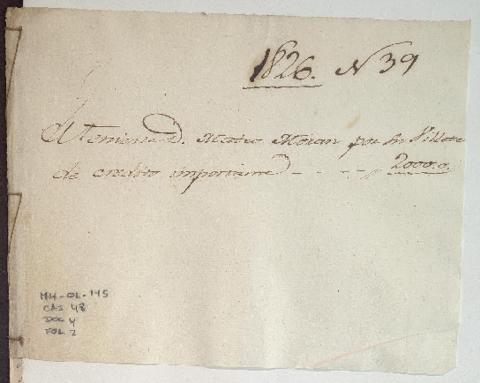 1826. N 39
El Teniente D. Mateo Moran por un Villete
de credito importante - - - - 2000.
MH-OL-145
CAJ 48
DOC 4
FOL 2